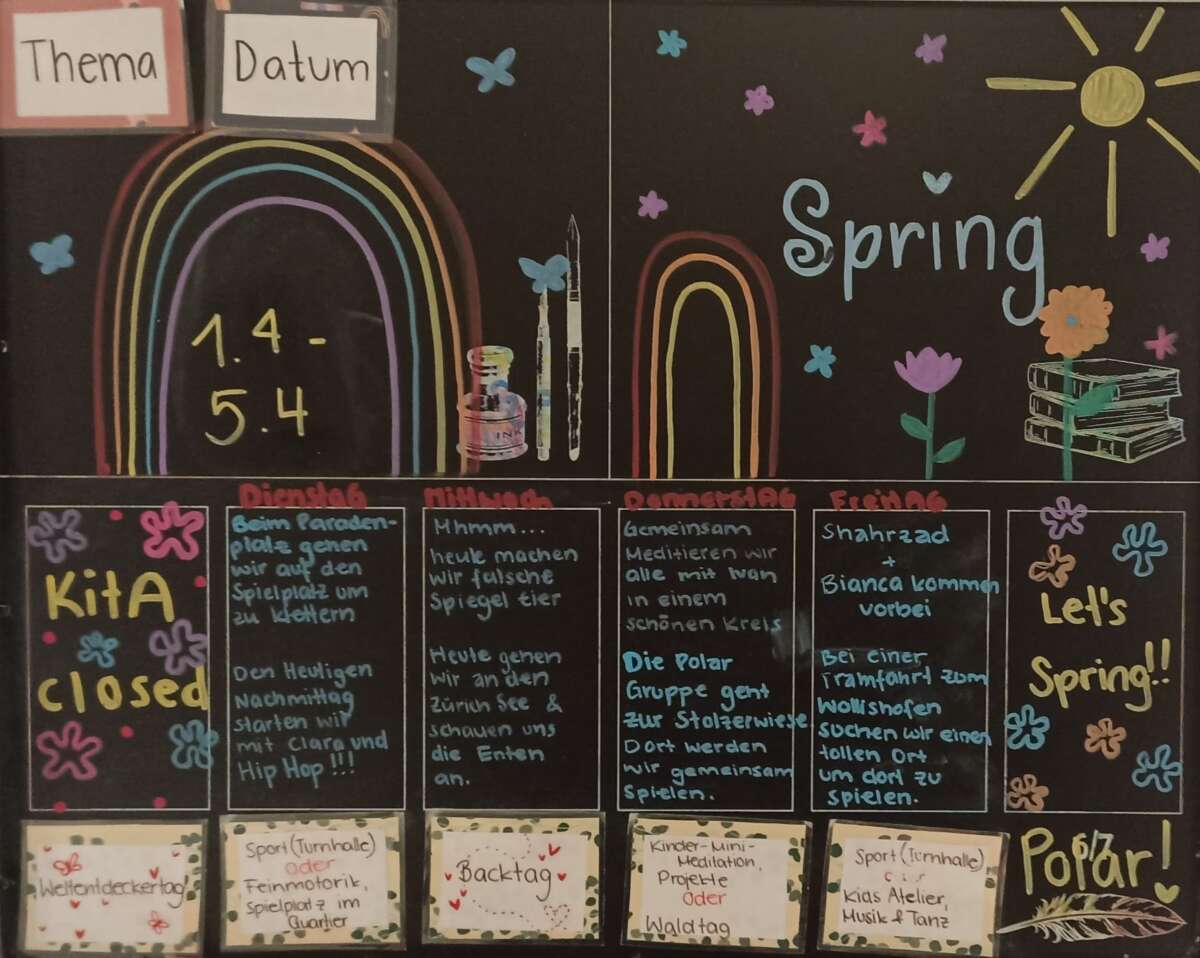 Thema
Datum
1.4 -
5.4
INK
Spring
Dienstag
Beim Paraden-
platz gehen
wir auf den
Spielplatz um
zu klettern
Den Heutigen
Nachmittag
starten wir
mit Clara und
Hip Hop!!!
Mittwoch
Mhmm...
heute machen
wir falsche
Spiegel eier
Heute gehen
wir an den
Zürich See &
schauen uns
die Enten
an.
DonnerstAG
Gemeinsam
Meditieren wir
alle mit Ivan
in einem
schönen Kreis
Die Polar
Gruppe geht
zur Stolzerwiese
Dort werden
wir gemeinsam
spielen.
FreitAG
Shahrzad
+
Bianca kommen
vorbei
Bei einer
Tramfahrt zum
Wollishofen
suchen wir einen
tollen Ort
um dort zu
spielen.
KitA
closed
Let's
Spring!!
Weltentdeckertag
Sport (Turnhalle)
oder
Feinmotorik,
Spielplatz im
Quartier
Backtag
Kinder-Mini-
Meditation,
Projekte
oder
Waldtag
Sport (Turnhalle)
Kids Atelier,
Musik & Tanz
Polar!
6/7